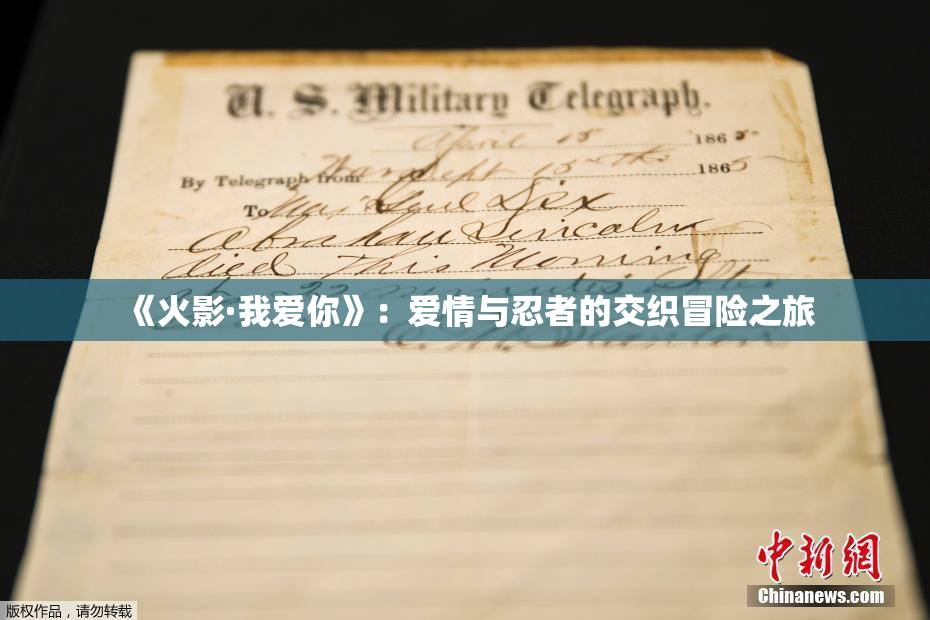 U. S. Military Telegraph.
April 15 1865
By Telegraph from War Dept 15th 1865
To Maj Genl Dix
Abraham Lincoln
died This Morning
22 minutes after
《火影·我爱你》：爱情与忍者的交织冒险之旅
E. M. Stanton
中新網
Chinanews.com
版权作品，请勿转载